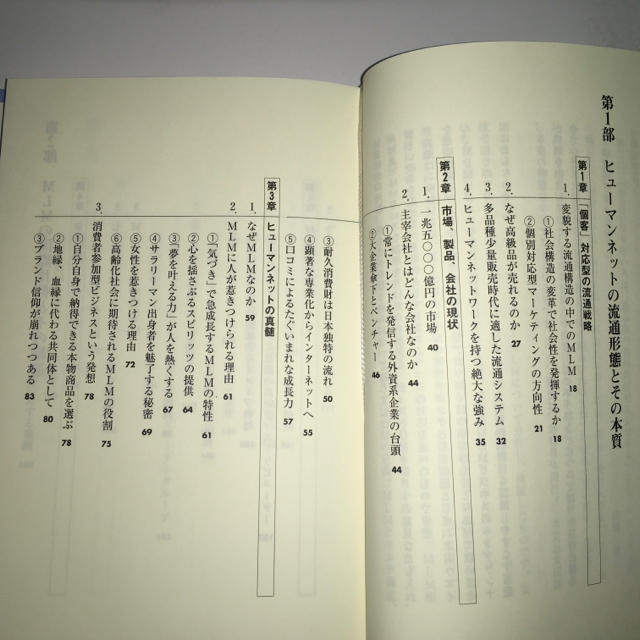 第1部 ヒューマンネットの流通形態とその本質
第1章 「個客」対応型の流通戦略
1. 変貌する流通構造の中でのMLM 18
①社会構造の変革で社会性を発揮するか 18
②個別対応型マーケティングの方向性 21
2. なぜ高級品が売れるのか 27
3. 多品種少量販売時代に適した流通システム 32
4. ヒューマンネットワークを持つ絶大な強み 35
第2章 市場、製品、会社の現状
1. 一兆五〇〇〇億円の市場 40
2. 主宰会社とはどんな会社なのか 44
①常にトレンドを発信する外資系企業の台頭 44
②大企業傘下とベンチャー 46
③耐久消費財は日本独特の流れ 50
④顕著な専業化からインターネットへ 55
⑤口コミによるたぐいまれな成長力 57
第3章 ヒューマンネットの真髄
1. なぜMLMなのか 59
2. MLMに人が惹きつけられる理由 61
①「気づき」で急成長するMLMの特性 61
②心を揺さぶるスピリッツの提供 64
③「夢を叶える力」が人を熱くする 67
④サラリーマン出身者を魅了する秘密 69
⑤女性を惹きつける理由 72
⑥高齢化社会に期待されるMLMの役割 75
3. 消費者参加型ビジネスという発想 78
①自分自身で納得できる本物商品を選ぶ 78
②地縁、血縁に代わる共同体として 80
③ブランド信仰が崩れつつある 83